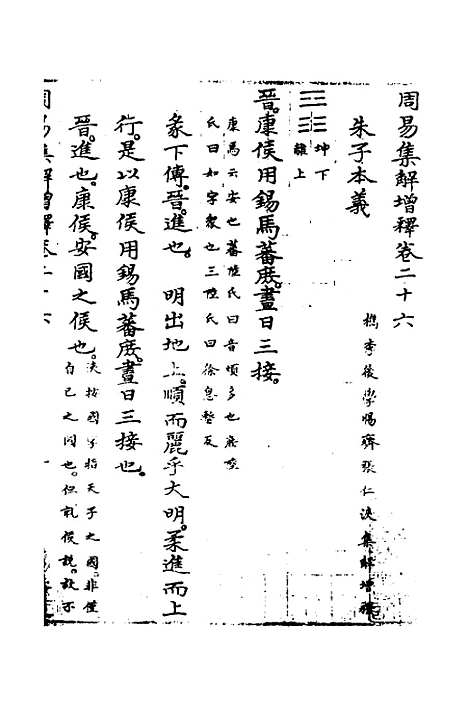 周易集解增釋卷二十六
檇李後學惕齋張仁浹集解增釋
朱子本義
坤下
離上
晉康侯用錫馬蕃庶晝日三接
康馬云安也蕃陸氏曰音煩多也庶
氏曰如字衆也三陸氏曰徐息暫反
彖下傳晉進也 明出地上順而麗乎大明柔進而上
行是以康侯用錫馬蕃庶晝日三接也
晉進也康侯安國之侯也
浹按國字指天子之國非僅
自己之國也但就侯說故亦
周易集解增釋卷二十六
一